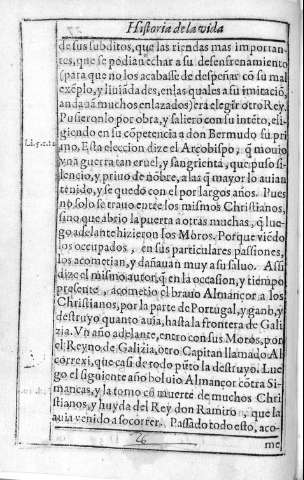 Historia de la vida
de sus subditos, que las riendas mas importan-
tes, que se podian echar a su desenfrenamiento
(para que no los acabasse de despeñar cõ su mal
exẽplo, y liuiãdades, en las quales a su imitació,
andauã muchos enlazados) era elegir otro Rey.
Pusieronlo por obra, y salierõ con su intẽto, eli-
giendo en su cõpetencia a don Bermudo su pri
mo. Esta eleccion dize el Arçobispo, q̃ mouio
vna guerra tan cruel, y sangrienta, que puso si-
lencio, y priuo de nõbre, a las q̃ mayor lo auian
tenido, y se quedò con el por largos años. Pues
no solo se trauo entre los mismos Christianos,
sino que abrio la puerta a otras muchas, q̃ lue-
go adelante hizieron los Moros. Porque viẽdo
los occupados, en sus particulares passiones,
los acometian, y dañauan muy a su saluo. Assi
dize el mismo autor, q̃ en la occasion, y tiempo
presente, acometio el brauo Almançor a los
Christianos, por la parte de Portugal, y ganò, y
destruyo quanto auia, hasta la frontera de Gali
zia. Vn año adelante, entro con sus Moros, por
el Reyno de Galizia, otro Capitan llamado Al
correxi, que casi de todo pũto la destruyó. Lue
go el siguiente año boluio Almançor cõtra Si-
mancas, y la tomo cõ muerte de muchos Chri
stianos, y huyda del Rey don Ramiro, que la
auia venido a socorrer. Passado todo esto, aco-
me